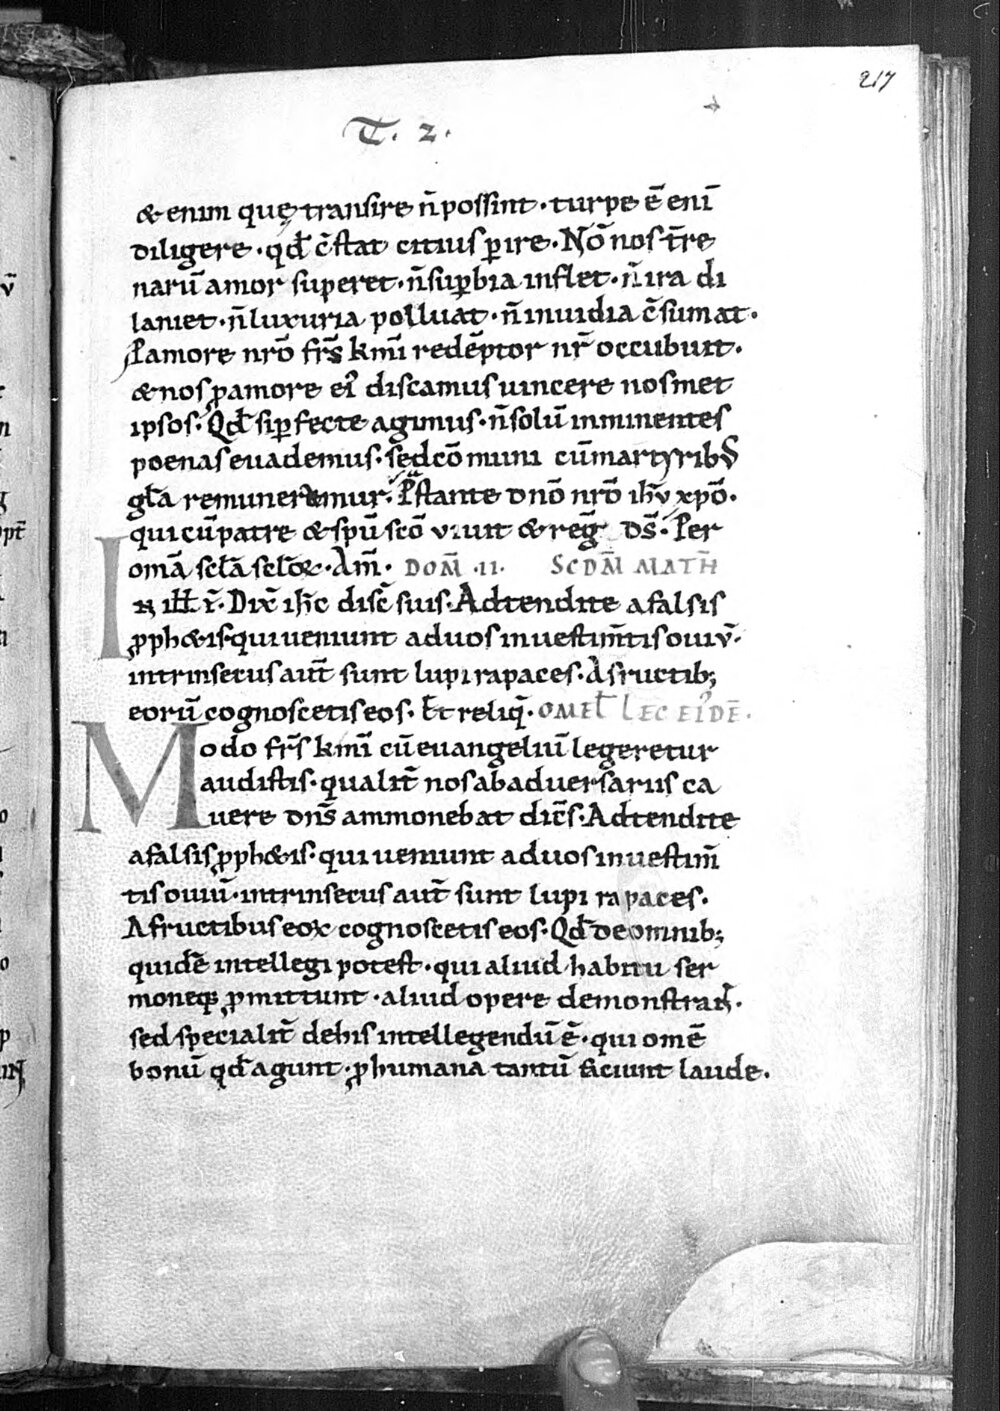 217
T. 2.
& enim quę transire n̄ possint · turpe ē eni̅
diligere · qđ c̄stat citius ꝑire · Nō nos t̄re
narū amor superet · n̄ suꝑbia inflet · n̄ ira di
laniet · n̄ luxuria polluat · n̄ inuidia c̄sumat ·
P amore nrō fr̄s kmī redēptor nr̄ occubuit ·
& nos ꝓ amore ei' discamus uincere nosmet
ipsos · Qđ si ꝑfecte agimus · n̄ solū inminentes
poenas euademus · sed cōmuni cū martyribs
gła remuneramur · P̄stante dnō nrō ihū xpō ·
qui cū patre & spū scō viuit & reg̅ ds̄ · Per
omā scła scłoꝝ · Am̄ · DOM̄ · II · SCDM̄ MATH̄
IN iłł t̄ · Dix̄ ihc̄ disc̄ suis · Adtendite a falsis
ꝓph&is · qui ueniunt ad uos in uestim̄tis ouiū ·
intrinsecus aut̄ sunt lupi rapaces · A fructib;
eorū cognoscetis eos · Et reliq̄ · OMEŁ LEC EI'DĒ ·
Modo fr̄s kmī cū euangeliū legeretur
audistis · qualit̄ nos ab aduersariis ca
uere dns̄ ammonebat dic̄s · Adtendite
a falsis ꝓph&is · qui ueniunt ad uos in uestim̄
tis ouiū · intrinsecus aut̄ sunt lupi rapaces ·
A fructibus eoꝝ cognoscetis eos · Qđ de omnib;
quidē intellegi potest · qui aliud habitu ser
moneq; ꝓmittunt · aliud opere demonstrant ·
sed specialit̄ de his intellegendū ē · qui omē
bonū qđ agunt · ꝓ humana tantū faciunt laude ·